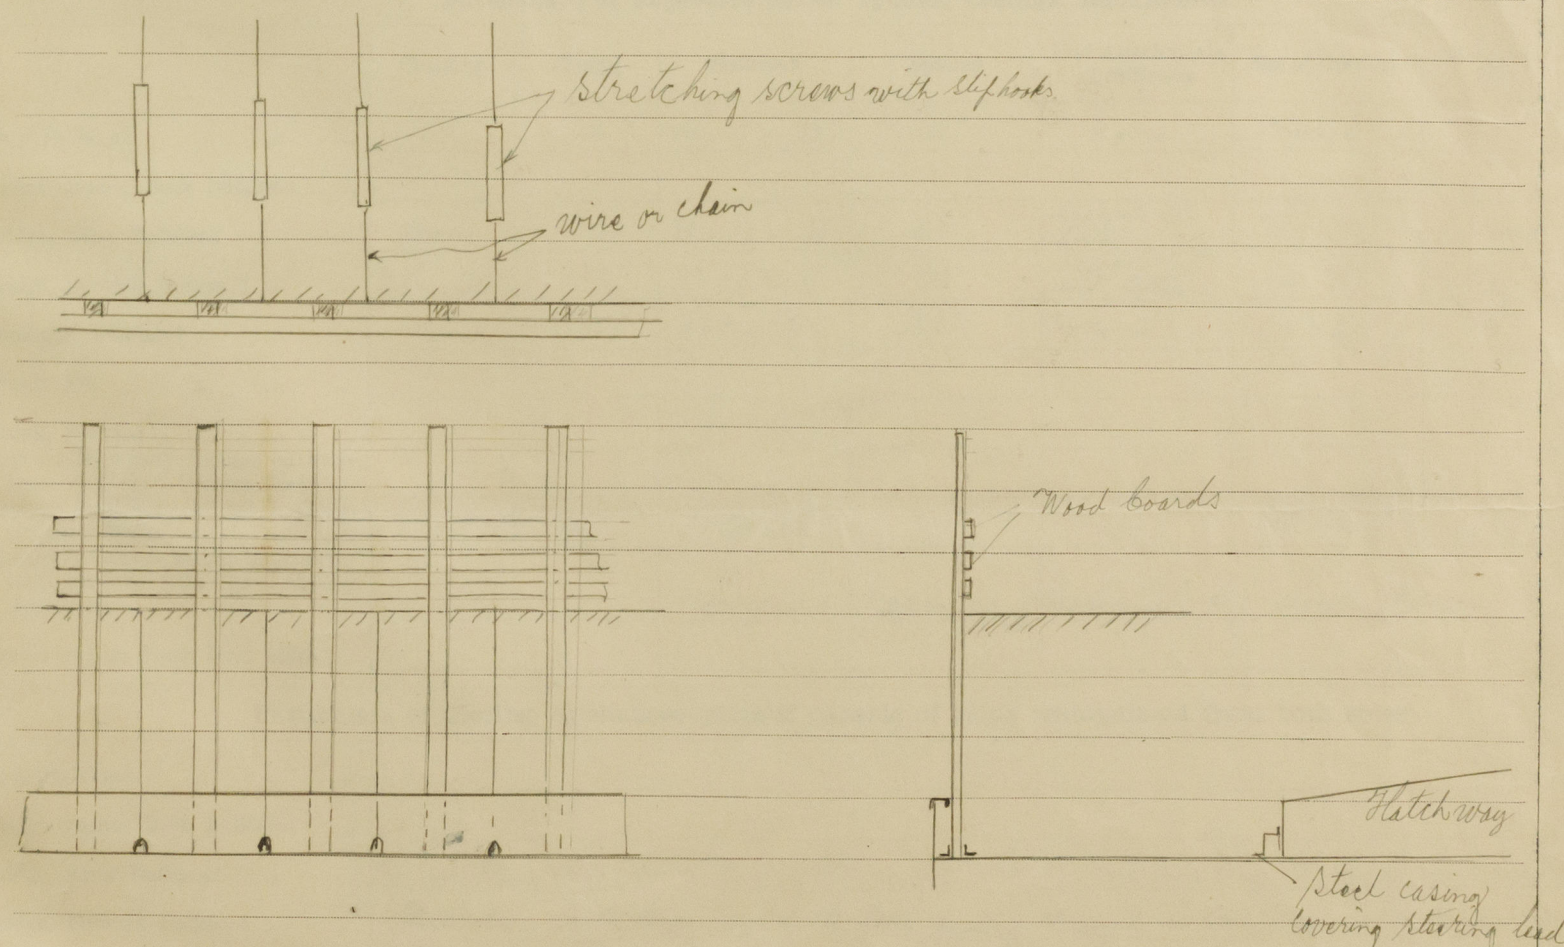 stretching screws with sliphooks.
wire or chain
Wood boards
Hatchway
Steel casing
covering steering lead